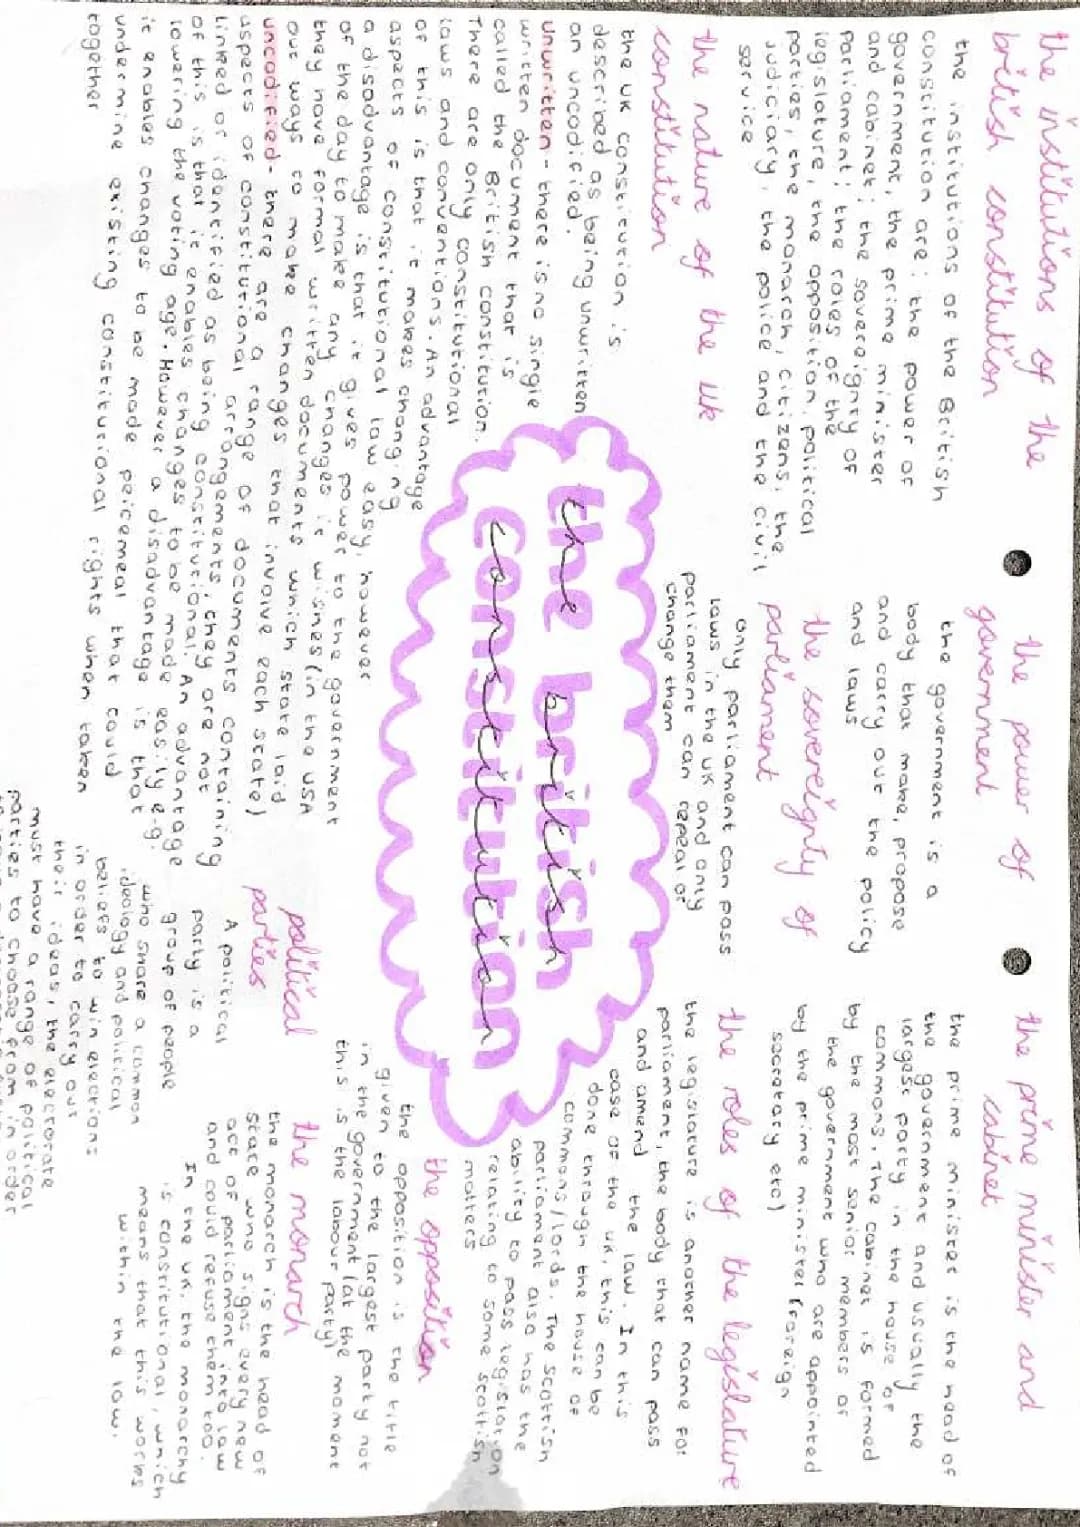 the british constitution
the institutions of the
british constitution
the institutions of the British
constitution are: the power of
government, the prime minister
and cabinet; the sovereignty of
parliament; the roles of the
legislature, the opposition, political
parties, the monarch, citizens, the
judiciary, the police and the civil
service
the nature of the uk
constitution
the UK constitution is
described as being unwritten
an uncodified.
unwritten - there is no single
written document that is
called the British constitution.
There are only constitutional
laws and conventions. An advantage
of this is that it makes changing
aspects of constitutional law easy, however
a disadvantage is that it gives power to the government
of the day to make any changes it wishes (in the USA
they have formal written documents which state laid
out ways to make changes that involve each state)
uncodified - there are a range of documents containing
aspects of constitutional arrangements, they are not
linked or identified as being constitutional. An advantage
of this is that it enables changes to be made easily e.g.
lowering the voting age. However a disadvantage is that
it enables changes to be made peicemeal that could
undermine existing constitutional rights when taken
together
the power of
government
the government is a
body that make, propose
and cary out the policy
and laws
the sovereignty of
parliament
only parliament can pass
laws in the UK and only
parliament can repeal or
change them
the prime minister and
cabinet
the prime minister is the head of
the government and usually the
largest party in the house of
commons. The cabinet is formed
by the most senior members of
the government who are appointed
by the prime minister (foreign
secretary etc)
the roles of the legislature
the legislature is another name for
parliament, the body that can pass
and amend the law. In this
case of the UK, this can be
done through the house of
commons/lords. The scottish
parliament also has the
ability to pass legislation
relating to some scottish
maters
the opposition
the opposition is the title
given to the largest party not
in the government (at the moment
this is the labour party)
the monarch
the monarch is the head of
state who signs every new
act of parliament into law
and could refuse them too.
In the UK, the monarchy
is constitutional, which
means that this works
within the law.
political
parties
A political
party is a
group of people
who share a comon
ideology and political
beliefs to win elections
in order to carry out
their ideas, the electorate
must have a range of political
parties to choose from in order